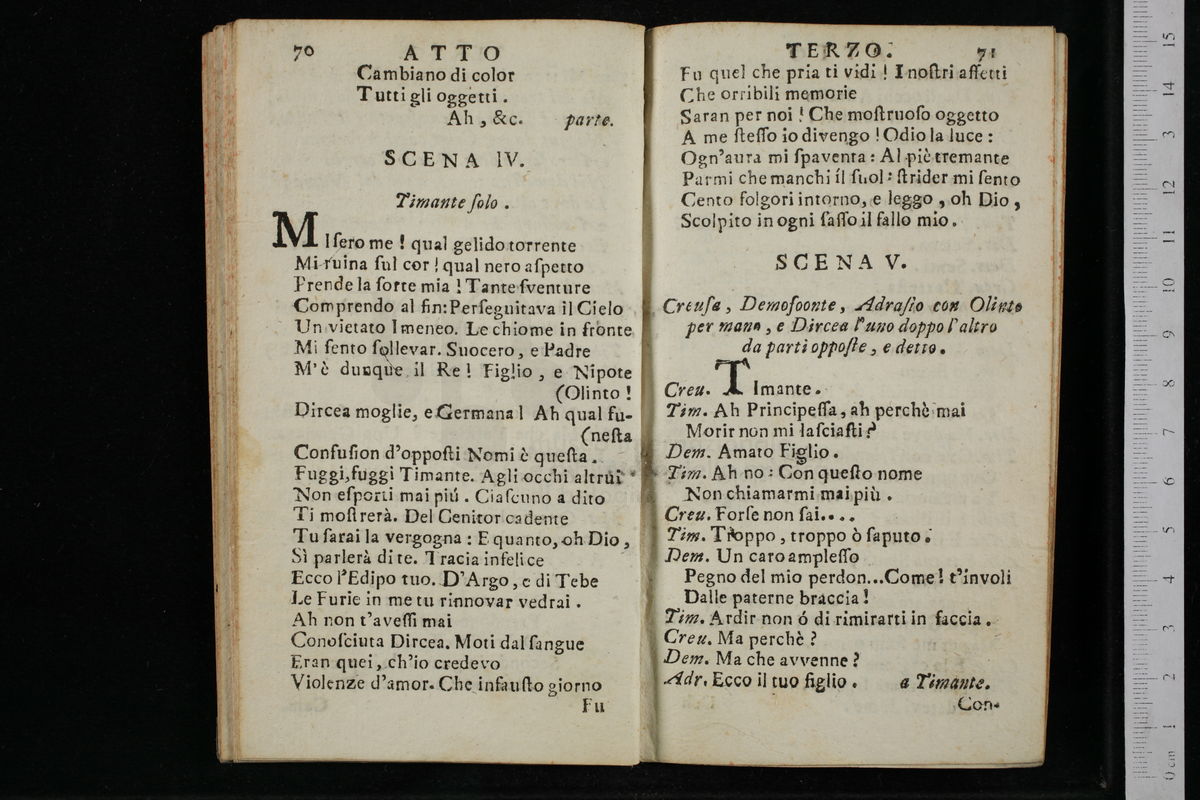 70 ATTO
Cambiano di color
Tutti gli oggetti.
Ah, &c. parte.
SCENA IV.
Timante solo.
MIſero me! qual gelido torrente
Mi ruina ſul cor! qual nero aſpetto
Prende la ſorte mia! Tante ſventure
Comprendo al fin: Perſeguitava il Cielo
Un vietato Imeneo. Le chiome in fronte
Mi ſento ſollevar. Suocero, e Padre
M'è dunque il Re! Figlio, e Nipote
(Olinto!
Dircea moglie, e Germana! Ah qual fu-
(neſta
Confuſion d'oppoſti Nomi è queſta.
Fuggi, fuggi Timante. Agli occhi altrui
Non eſporti mai piú. Ciaſcuno a dito
Ti moſtrerà. Del Genitor cadente
Tu ſarai la vergogna: E quanto, oh Dio,
Sì parlerà di te. Tracia infelice
Ecco l'Edipo tuo. D'Argo, e di Tebe
Le Furie in me tu rinnovar vedrai.
Ah non t'aveſſi mai
Conoſciuta Dircea. Moti dal ſangue
Eran quei, ch'io credevo
Violenze d'amor. Che infauſto giorno
Fu
TERZO. 71
Fu quel che pria ti vidi! I noſtri affetti
Che orribili memorie
Saran per noi! Che moſtruoſo oggetto
A me ſteſſo io divengo! Odio la luce:
Ogn'aura mi ſpaventa: Al piè tremante
Parmi che manchi il ſuol: ſtrider mi ſento
Cento folgori intorno, e leggo, oh Dio,
Scolpito in ogni ſaſſo il fallo mio.
SCENA V.
Creuſa, Demofoonte, Adraſto con Olinto
per mano, e Dircea l'uno doppo l'altro
da parti oppoſte, e detto.
Creu. TImante.
Tim. Ah Principeſſa, ah perchè mai
Morir non mi laſciaſti?
Dem. Amato Figlio.
Tim. Ah no: Con queſto nome
Non chiamarmi mai più.
Creu. Forſe non ſai....
Tim. Troppo, troppo ò ſaputo.
Dem. Un caro ampleſſo
Pegno del mio perdon...Come! t'involi
Dalle paterne braccia!
Tim. Ardir non ó di rimirarti in faccia.
Creu. Ma perchè?
Dem. Ma che avvenne?
Adr. Ecco il tuo figlio. a Timante.
Con-